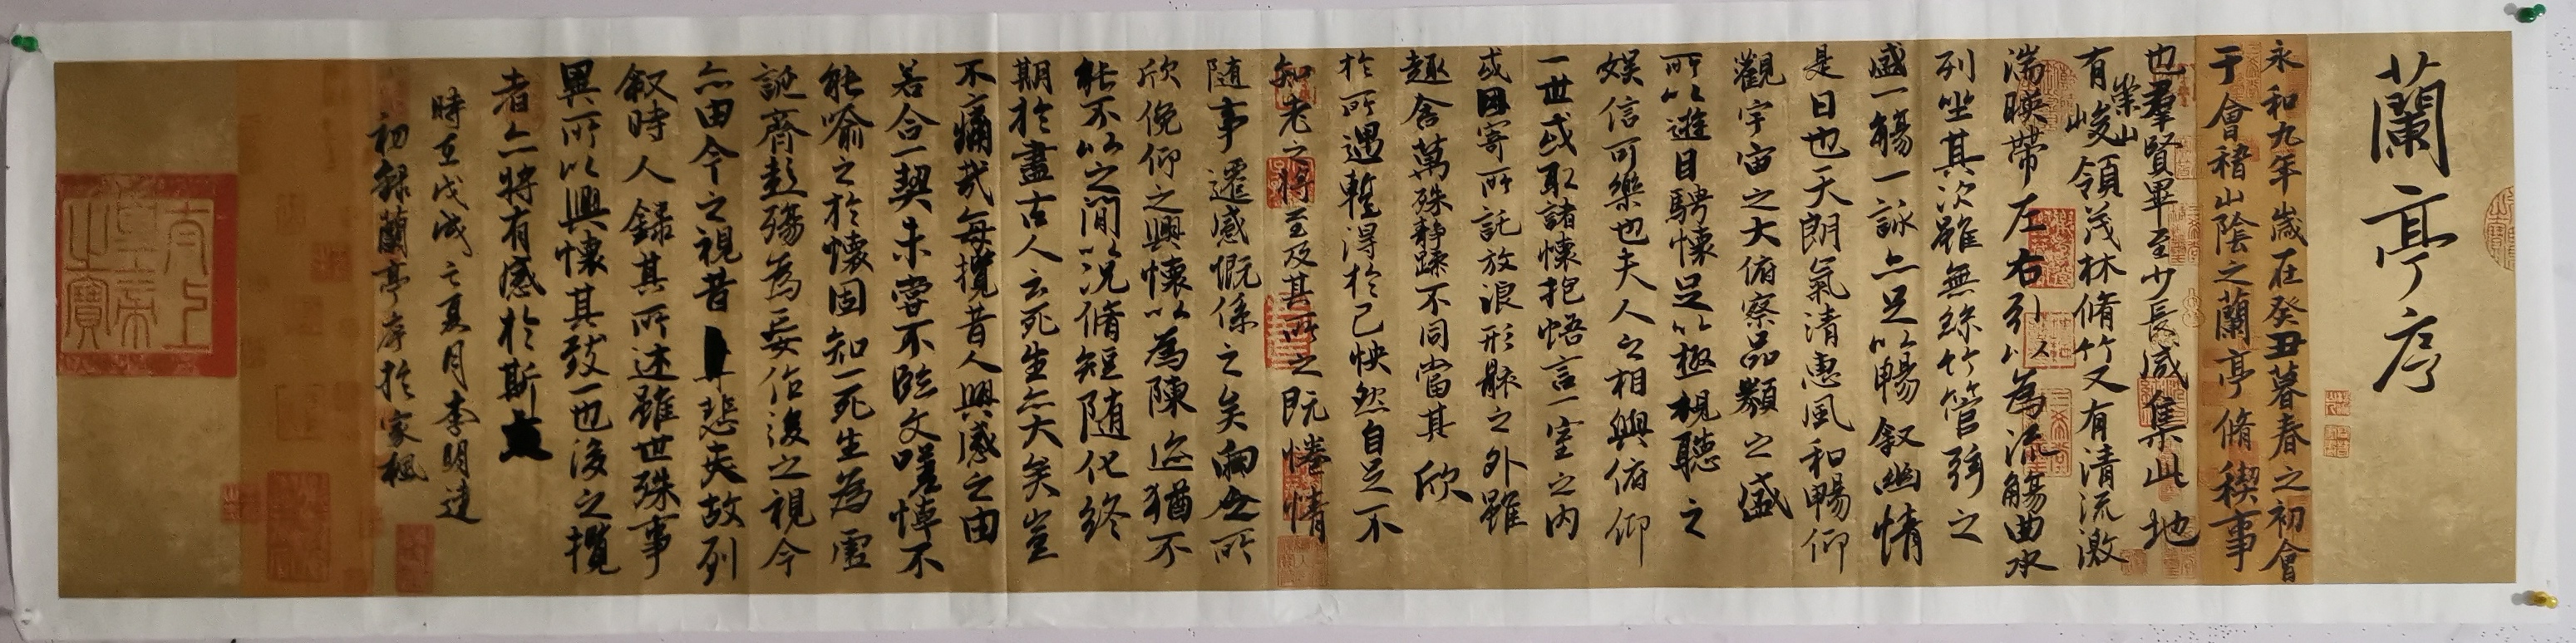 蘭亭序
永和九年歲在癸丑暮春之初會
于會稽山陰之蘭亭脩稧事
也羣賢畢至少長咸集此地
有崇山峻領茂林脩竹又有清流激
湍暎帶左右引以為流觴曲水
列坐其次雖無絲竹管弦之
盛一觴一詠亦足以暢叙幽情
是日也天朗氣清惠風和暢仰
觀宇宙之大俯察品類之盛
所以遊目騁懷足以極視聽之
娛信可樂也夫人之相與俯仰
一世或取諸懷抱悟言一室之內
或因寄所託放浪形骸之外雖
趣舍萬殊靜躁不同當其欣
於所遇蹔得於己怏然自足不
知老之將至及其所之既惓情
隨事遷感慨係之矣向之所
欣俛仰之間以為陳迹猶不
能不以之興懷況脩短隨化終
期於盡古人云死生亦大矣豈
不痛哉每攬昔人興感之由
若合一契未嘗不臨文嗟悼不
能喻之於懷固知一死生為虛
誕齊彭殤為妄作後之視今
亦由今之視昔悲夫故列
叙時人錄其所述雖世殊事
異所以興懷其致一也後之攬
者亦將有感於斯文
時在戊戌之夏月李明達
初錄蘭亭序於家楓
太上皇帝之寶